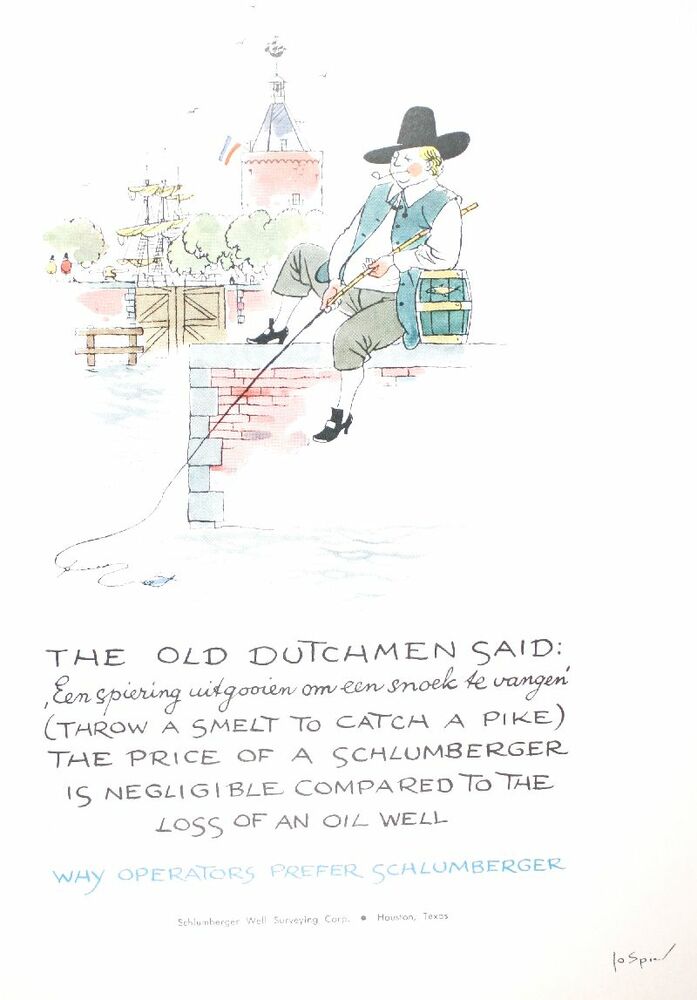 THE OLD DUTCHMEN SAID:
‚Een spiering uitgooien om een snoek te vangen'
(THROW A SMELT TO CATCH A PIKE)
THE PRICE OF A SCHLUMBERGER
IS NEGLIGIBLE COMPARED TO THE
LOSS OF AN OIL WELL
WHY OPERATORS PREFER SCHLUMBERGER
Schlumberger Well Surveying Corp. • Houston, Texas
Jo Spier